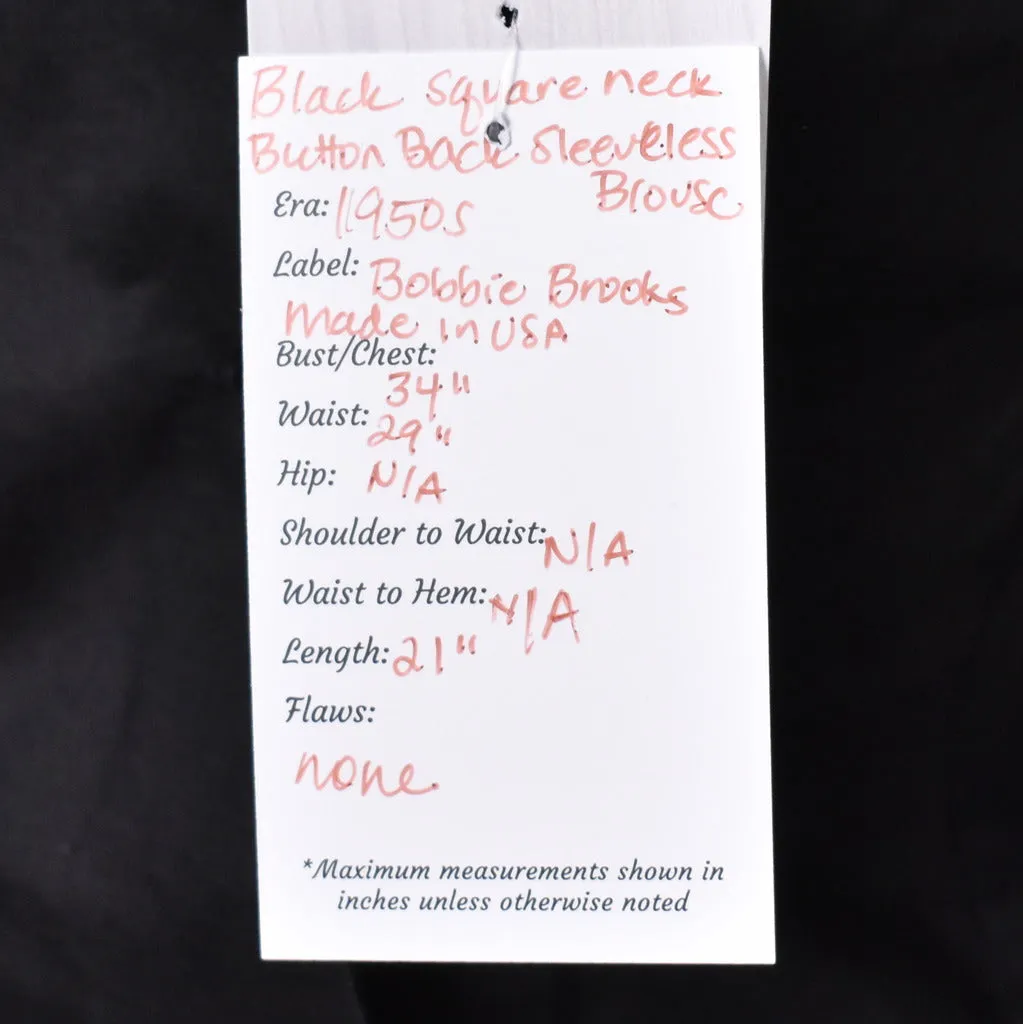 Black Square neck
Button Back Sleeveless
Blouse
Era: 1950s
Label: Bobbie Brooks
Made in USA
Bust/Chest:
34"
Waist: 29"
Hip: N/A
Shoulder to Waist: N/A
Waist to Hem: N/A
Length: 21"
Flaws:
none
*Maximum measurements shown in
inches unless otherwise noted